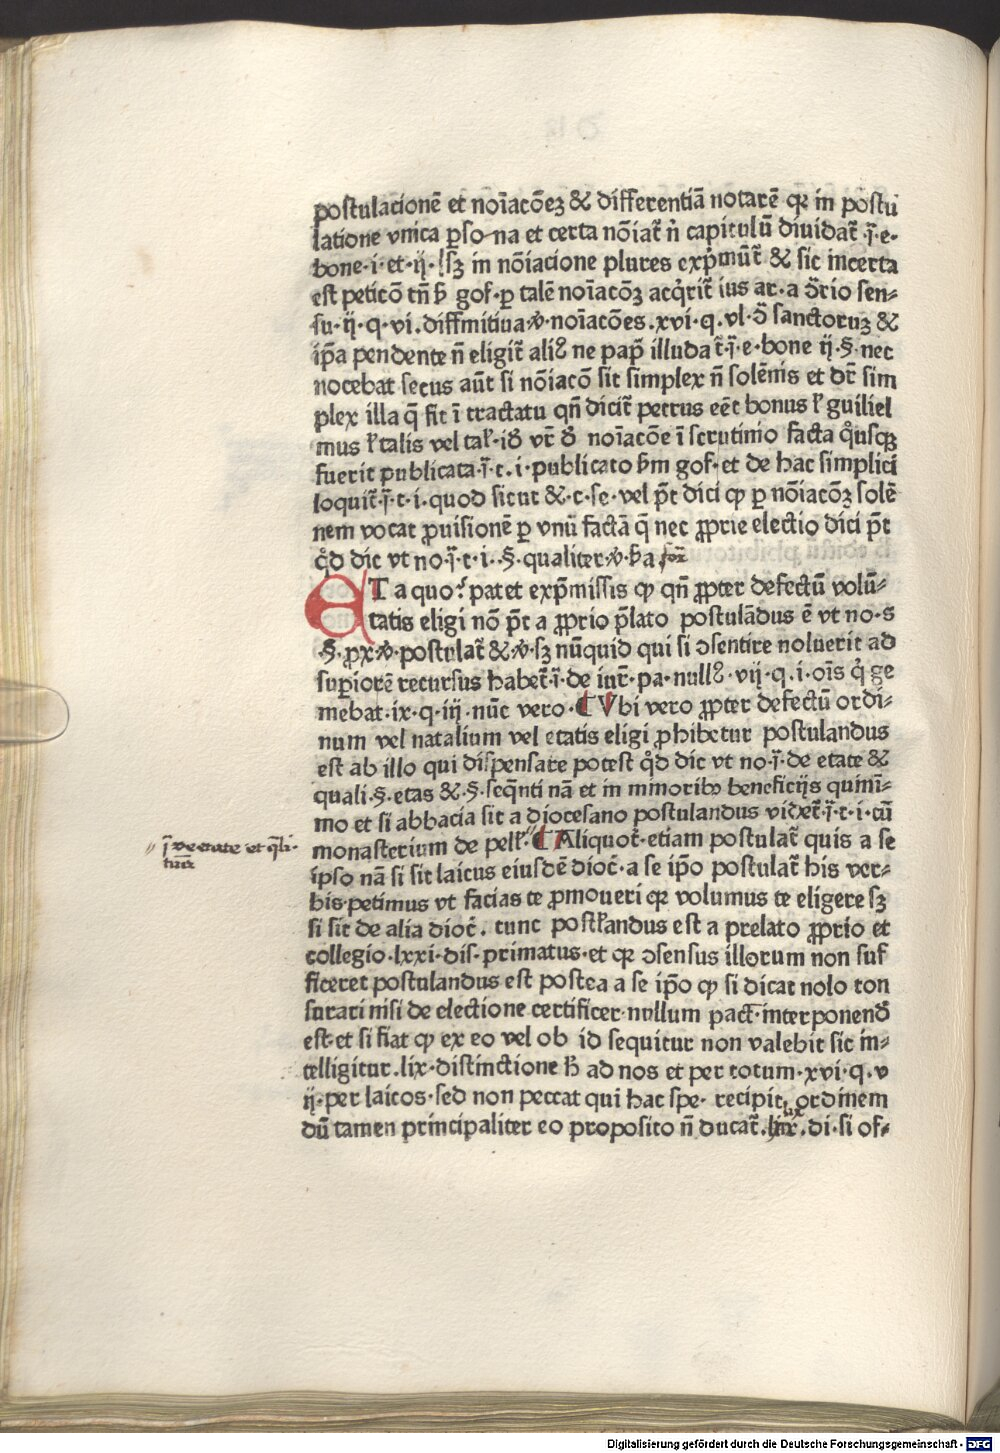 postulacionē et noīacōeꝫ & differentiā notarē qꝛ in postu
latione vnica ꝑso-na et certa nōiat̄ n̄ capitulū diuidat̄ ·ī·e·
bone·i·et·ij·sꝫ in nōiacione plures exp̄mūt̄ & sic incerta
est peticō tn̄ ƀ gof·ꝑ talē noīacōꝫ acq̄rit̄ ius ar·a ōrio sen⸗
su·ij·q·vi·diffinitiua·ꝟ·noīacōes·xvi·q·vl·ō sanctoruꝫ &
ip̄a pendente n̄ eligit̄ aliꝰ ne pap̄ illudat̄·ī·e·bone ij·§·nec
nocebat secus aūt si nōiacō sit simplex n̄ solēnis et dr̄ sim
plex illa q̄ fit ī tractatu qn̄ dicit̄ petrus eēt bonus ł guiliel
mus ł talis vel tał·iđ vtr̄ đ noīacōe ī scrutinio facta qͦusqꝫ
fuerit publicata·ī·t·i·publicato ƀm gof·et de hac simplici
loquit̄·ī·t·i·quod sicut &·t·se·vel p̄t dici ꝙ ꝑ nōiacōꝫ solē
nem vocat ꝓuisionē ꝑ vnū factā q̄ nec ꝓprie electio dici p̄t
qͦd dic vt no·ī·t·i··§·qualiter·ꝟ·ƀa for̄
ET a quoꝛ patet exp̄missis ꝙ qn̄ ꝓpter defectū volū⸗
tatis eligi nō p̄t a ꝓprio p̄lato postulādus ē vt no·s
·§·ꝓx·ꝟ·postulat̄ &·ꝟ·sꝫ nūquid qui si ↄsentire noluerit ad
suꝑiorē recursus habet̄·ī·de iur̄·pa·nullꝰ·vij·q·i·oīs qͥ ge
mebat·ix·q·iij·nūc vero·¶ Vbi vero ꝓpter defectū ordi⸗
num vel natalium vel etatis eligi ꝓhibetur postulandus
est ab illo qui dispensare potest qͦd dic vt no·ī·de etate &
quali·§·etas &·§·seqn̄ti nā et in minoribꝰ beneficijs quini⸗
mo et si abbacia sit a diocesano postulandus videt̄·ī·t·i·cū
monasterium de pełł·¶ Aliquot̄·etiam postulat̄ quis a se
ipso nā si sit laicus eiusdē dioc̄·a se ip̄o postulat̄ his ver⸗
bis·petimus vt facias te ꝓmoueri qꝛ volumus te eligere sꝫ
si sit de alia dioc̄. tunc postłandus est a prelato ꝓprio et
collegio·lxxi·dis·primatus·et qꝛ ↄsensus illorum non suf
ficeret postulandus est postea a se ip̄o ꝙ si dicat nolo ton
surari nisi de electione certificer·nullum pact̄·interponenđ
est·et si fiat ꝙ ex eo vel ob id sequitur non valebit sic in⸗
telligitur·lix·distinctione ħ ad nos et per totum·xvi·q·v
ij·per laicos·sed non peccat qui hac spe· recipit ordinem
dū tamen principaliter eo proposito n̄ ducat̄·lxx·di·si of⸗
ī de etate et q̄li·
Digitalisierung gefördert durch die Deutsche Forschungsgemeinschaft - DFG